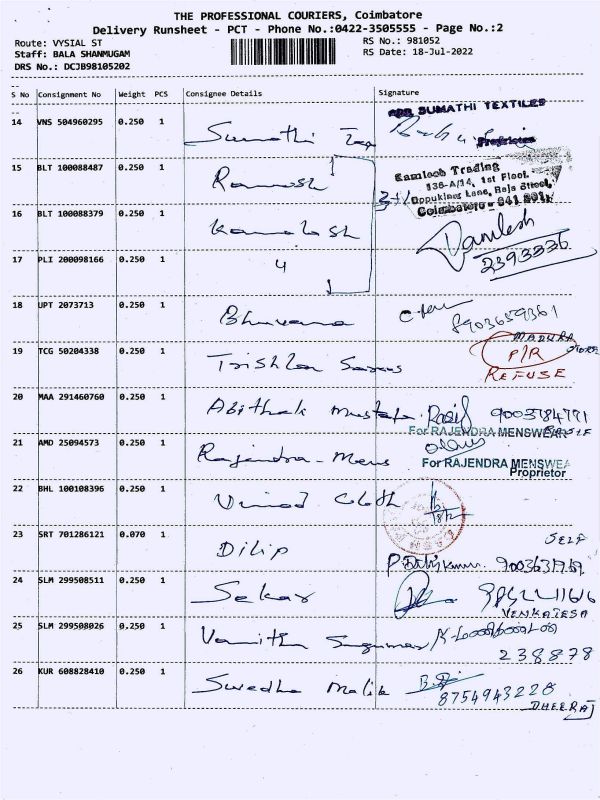 THE PROFESSIONAL COURIERS, Coimbatore
Delivery Runsheet - PCT - Phone No.:0422-3505555 - Page No.:2
Route: VYSIAL ST
RS No.: 981052
Staff: BALA SHANMUGAM
RS Date: 18-Jul-2022
DRS No.: DCJB98105202
S No Consignment No Weight PCS Consignee Details Signature
SUMATHI TEXTILES
14 VNS 504960295 0.250 1 Sumathi Tex
Proprietor
15 BLT 100088487 0.250 1 Ramesh
Kamlesh Trading
136-A/14, 1st Floor,
Oppukinar Lane, Raja Street,
Coimbatore - 641 001.
16 BLT 100088379 0.250 1 Kamalesh
2393336
17 PLI 200098166 0.250 1 4
18 UPT 2073713 0.250 1 Bhuvana 8903659361
19 TCG 50204338 0.250 1 Trishla
P/R
REFUSE
20 MAA 291460760 0.250 1 Abithali Mustafa 9003784771
For RAJENDRA MENSWEAR
21 AMD 25094573 0.250 1 Rajendra - Mens
For RAJENDRA MENSWEAR
Proprietor
22 BHL 100108396 0.250 1 Vinod Cloth
23 SRT 701286121 0.070 1 Dilip SELF
24 SLM 299508511 0.250 1 Sekar
VENKATESA
25 SLM 299508026 0.250 1 Vanitha Sugumar
238878
26 KUR 608828410 0.250 1 Swedha Malik 8754943228
DHEERAJ